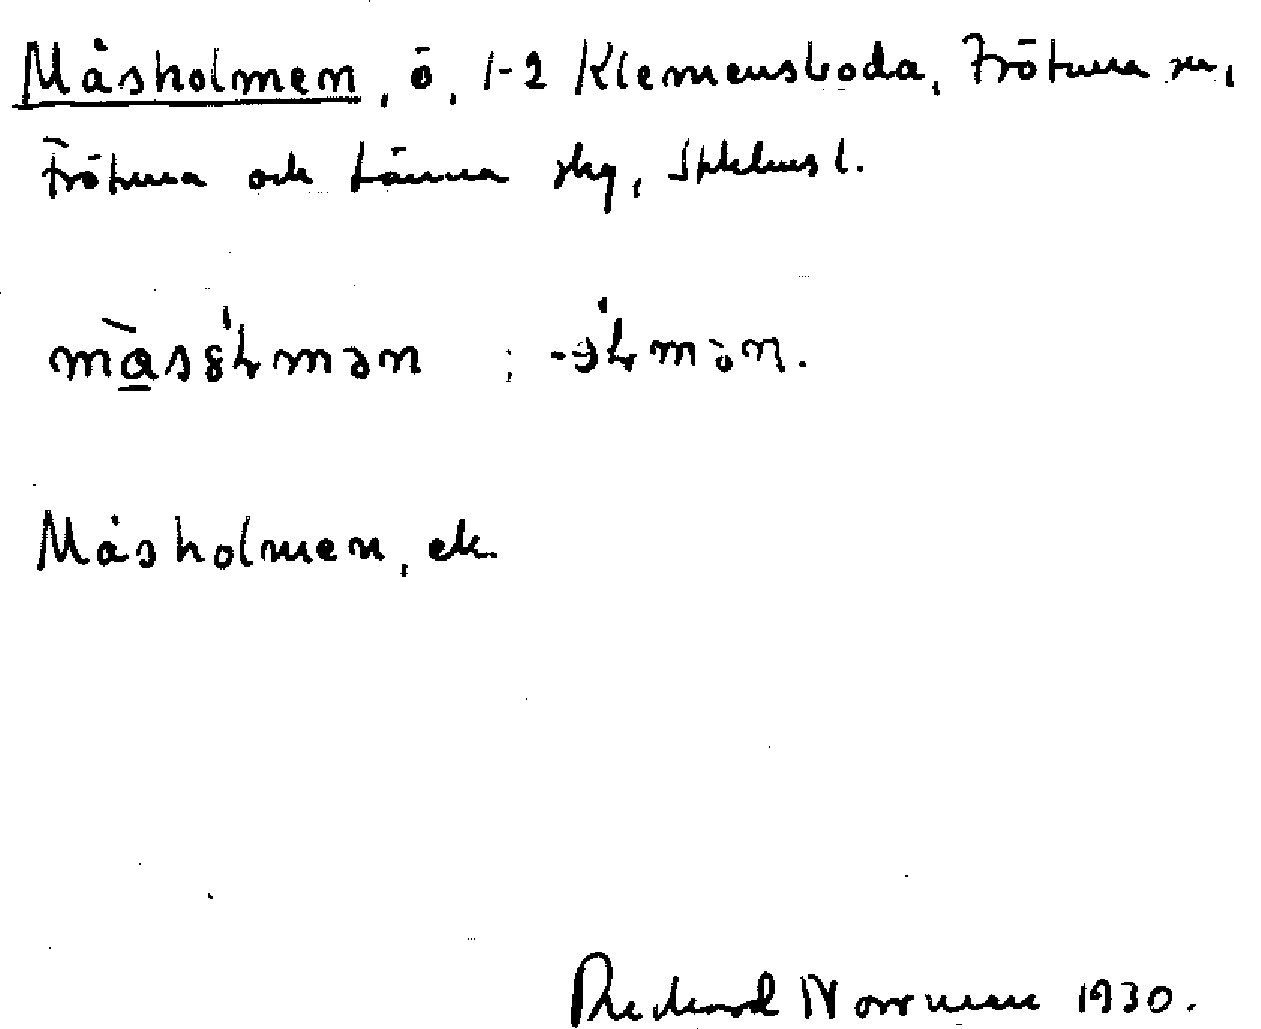 Måsholmen, ö, 1-2 Klemensboda, Frötuna sn,
Frötuna och Länna skg, Sthlms l.
Måsholmen, ek.
Richard Norrman 1930.